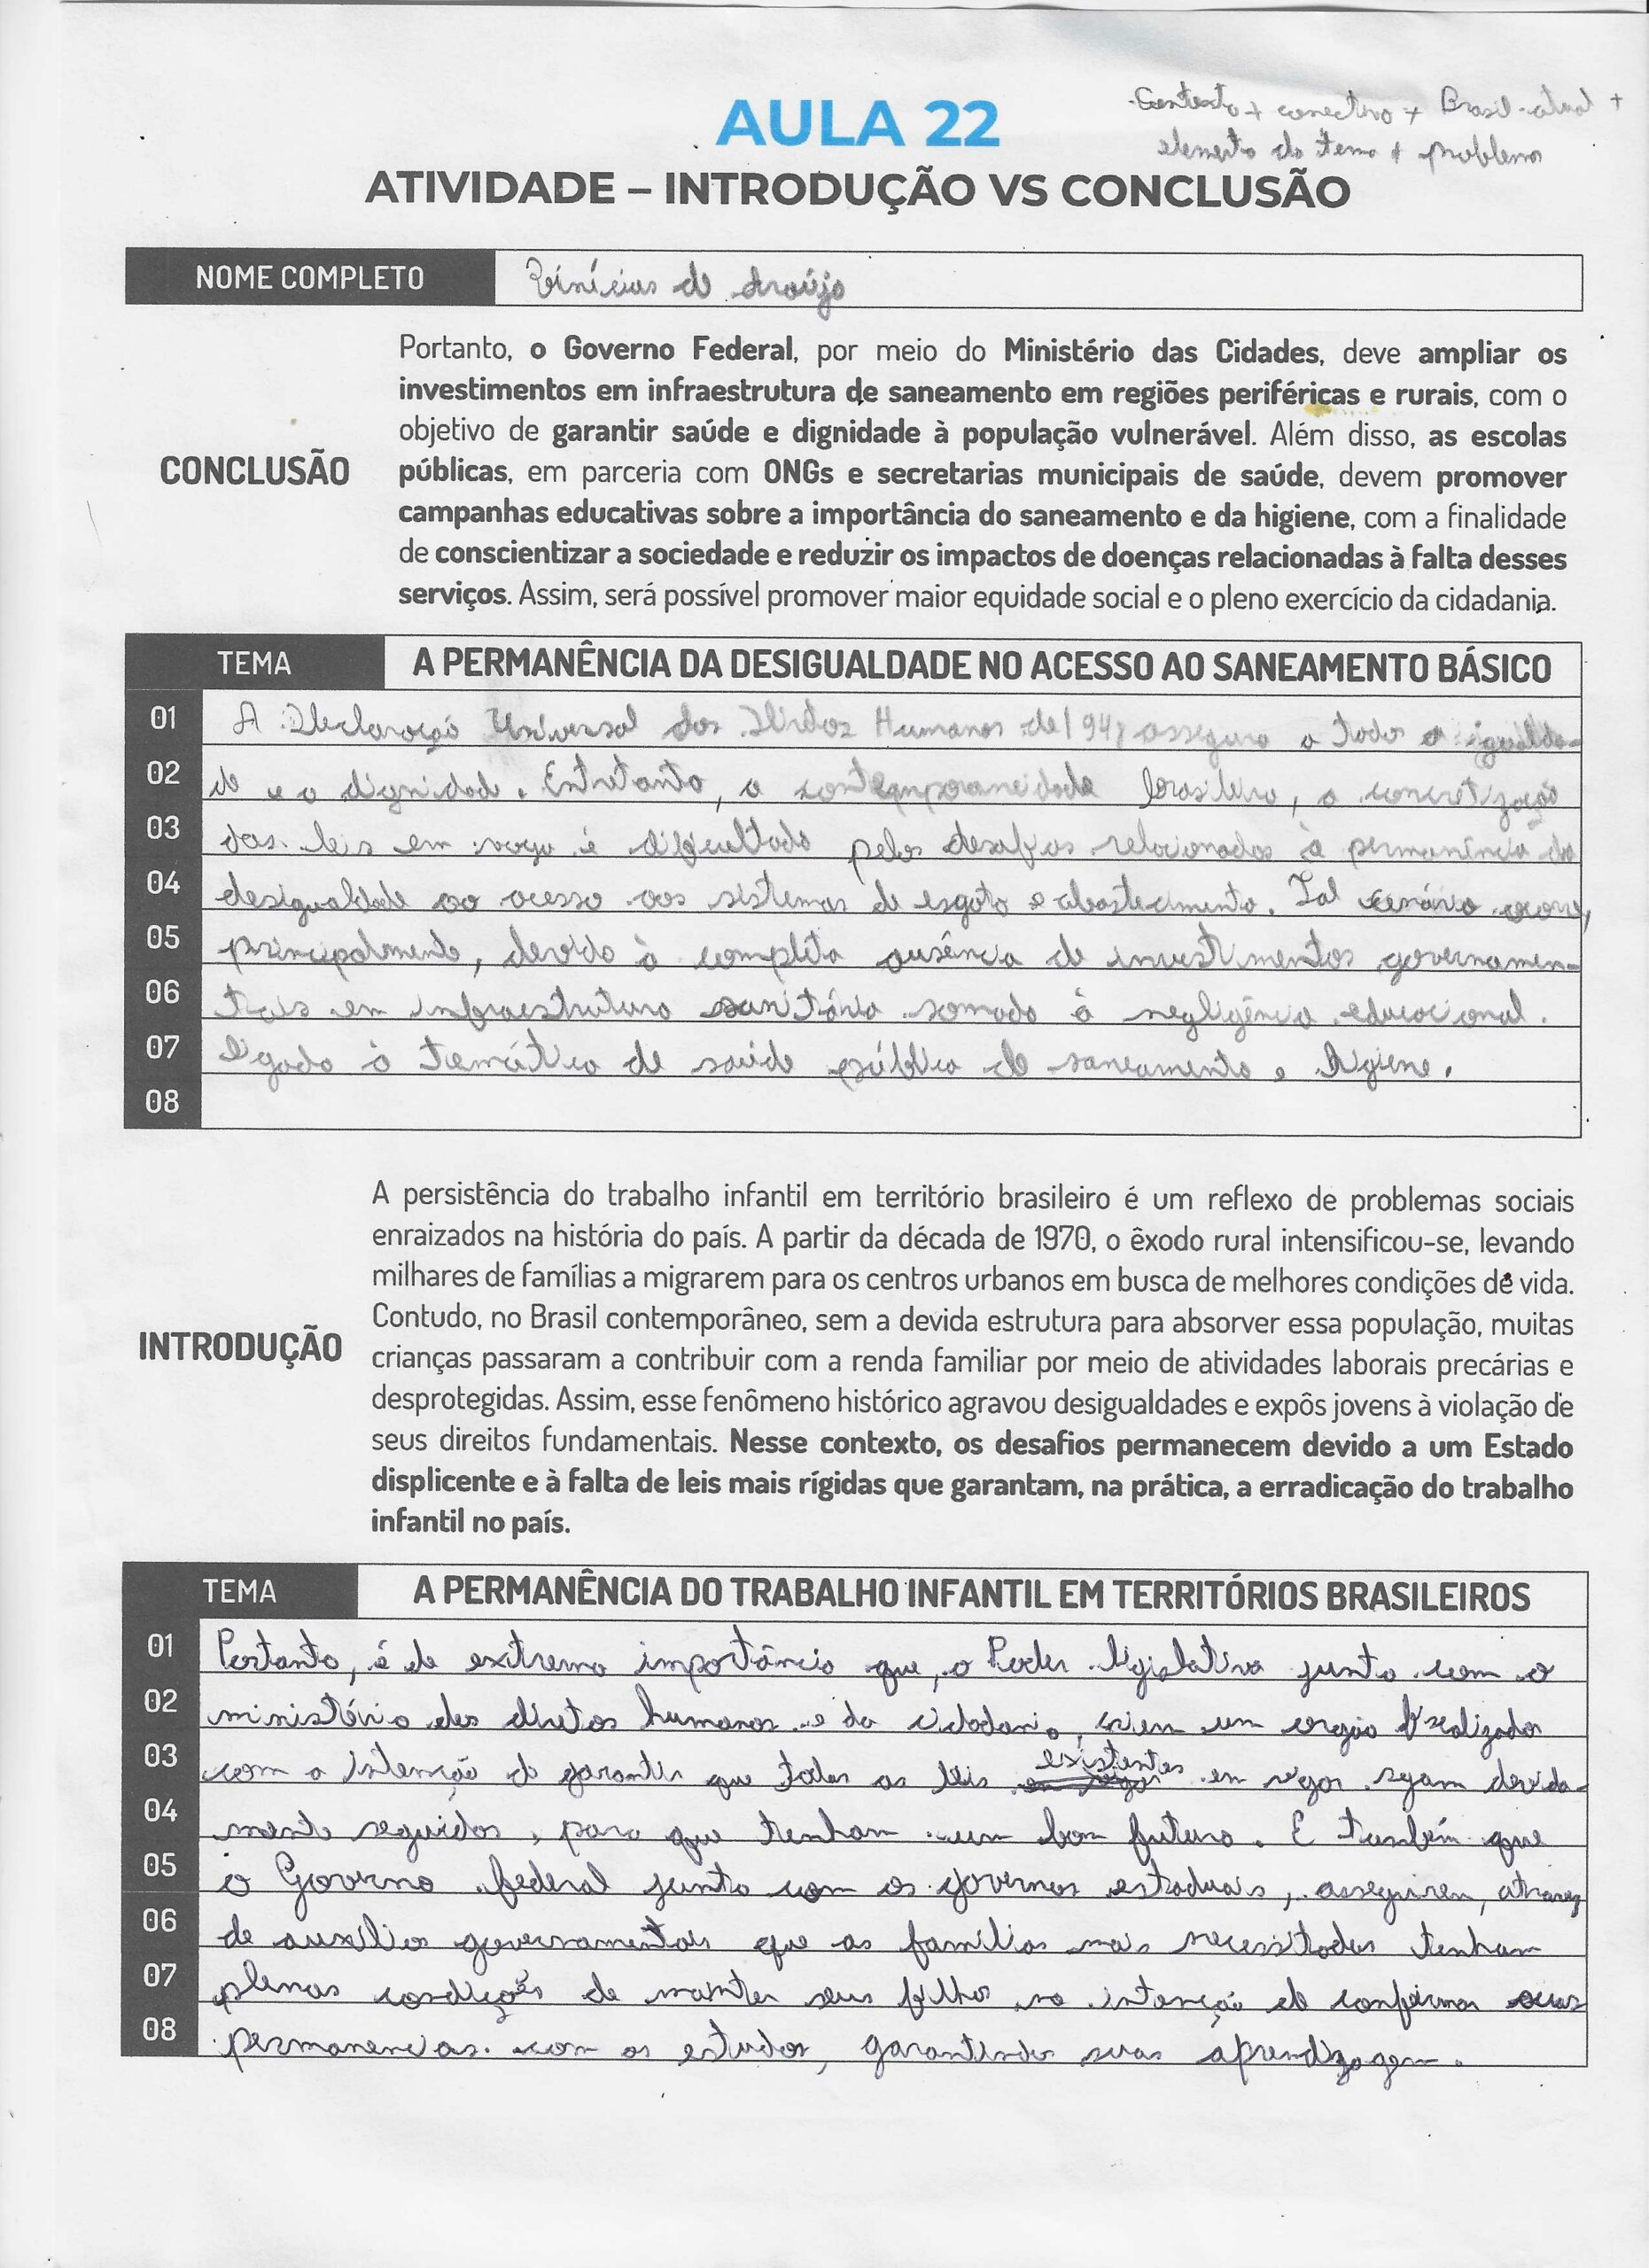 .Contexto + conectivo + Brasil atual +
elemento do tema + problema
AULA 22
ATIVIDADE – INTRODUÇÃO VS CONCLUSÃO
NOME COMPLETO Vinícius de Araújo
Portanto, o Governo Federal, por meio do Ministério das Cidades, deve ampliar os
investimentos em infraestrutura de saneamento em regiões periféricas e rurais, com o
objetivo de garantir saúde e dignidade à população vulnerável. Além disso, as escolas
CONCLUSÃO públicas, em parceria com ONGs e secretarias municipais de saúde, devem promover
campanhas educativas sobre a importância do saneamento e da higiene, com a finalidade
de conscientizar a sociedade e reduzir os impactos de doenças relacionadas à falta desses
serviços. Assim, será possível promover maior equidade social e o pleno exercício da cidadania.
TEMA A PERMANÊNCIA DA DESIGUALDADE NO ACESSO AO SANEAMENTO BÁSICO
01 A Declaração Universal dos Direitos Humanos de 1948 assegura a todos a igualda-
02 de e a dignidade. Entretanto, a contemporaneidade brasileira, a concretização
03 das leis em vigor é dificultada pelos desafios relacionados à permanência da
04 desigualdade ao acesso aos sistemas de esgoto e abastecimento. Tal cenário ocorre,
05 principalmente, devido à completa ausência de investimentos governamen-
06 tais em infraestrutura sanitária somado à negligência educacional.
07 ligada à temática de saúde pública de saneamento e higiene.
08
A persistência do trabalho infantil em território brasileiro é um reflexo de problemas sociais
enraizados na história do país. A partir da década de 1970, o êxodo rural intensificou-se, levando
milhares de famílias a migrarem para os centros urbanos em busca de melhores condições de vida.
Contudo, no Brasil contemporâneo, sem a devida estrutura para absorver essa população, muitas
INTRODUÇÃO crianças passaram a contribuir com a renda familiar por meio de atividades laborais precárias e
desprotegidas. Assim, esse fenômeno histórico agravou desigualdades e expôs jovens à violação de
seus direitos fundamentais. Nesse contexto, os desafios permanecem devido a um Estado
displicente e à falta de leis mais rígidas que garantam, na prática, a erradicação do trabalho
infantil no país.
TEMA A PERMANÊNCIA DO TRABALHO INFANTIL EM TERRITÓRIOS BRASILEIROS
01 Portanto, é de extrema importância que, o Poder legislativo junto com o
02 ministério dos diretos humanos e da cidadania, criem um orgão fiscalizador
03 com a intenção de garantir que todas as leis existentes em vigor sejam devida-
04 mente seguidas, para que tenham um bom futuro. E também que
05 o Governo federal junto com os governos estaduais, assegurem, atravez
06 de auxílios governamentais que as famílias mais necessitadas tenham
07 plenas condições de manter seus filhos na intenção de confirmar suas
08 permanencias com os estudos, garantindo suas aprendizagem.